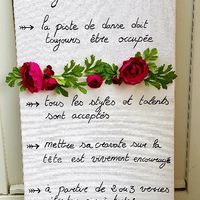 la piste de danse doit
toujours être occupée
tous les styles et talents
sont acceptés
mettre sa cravate sur la
tête est vivement encouragé
à partir de 2 ou 3 verres